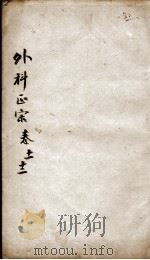 外科正宗卷十二
mtoou.info